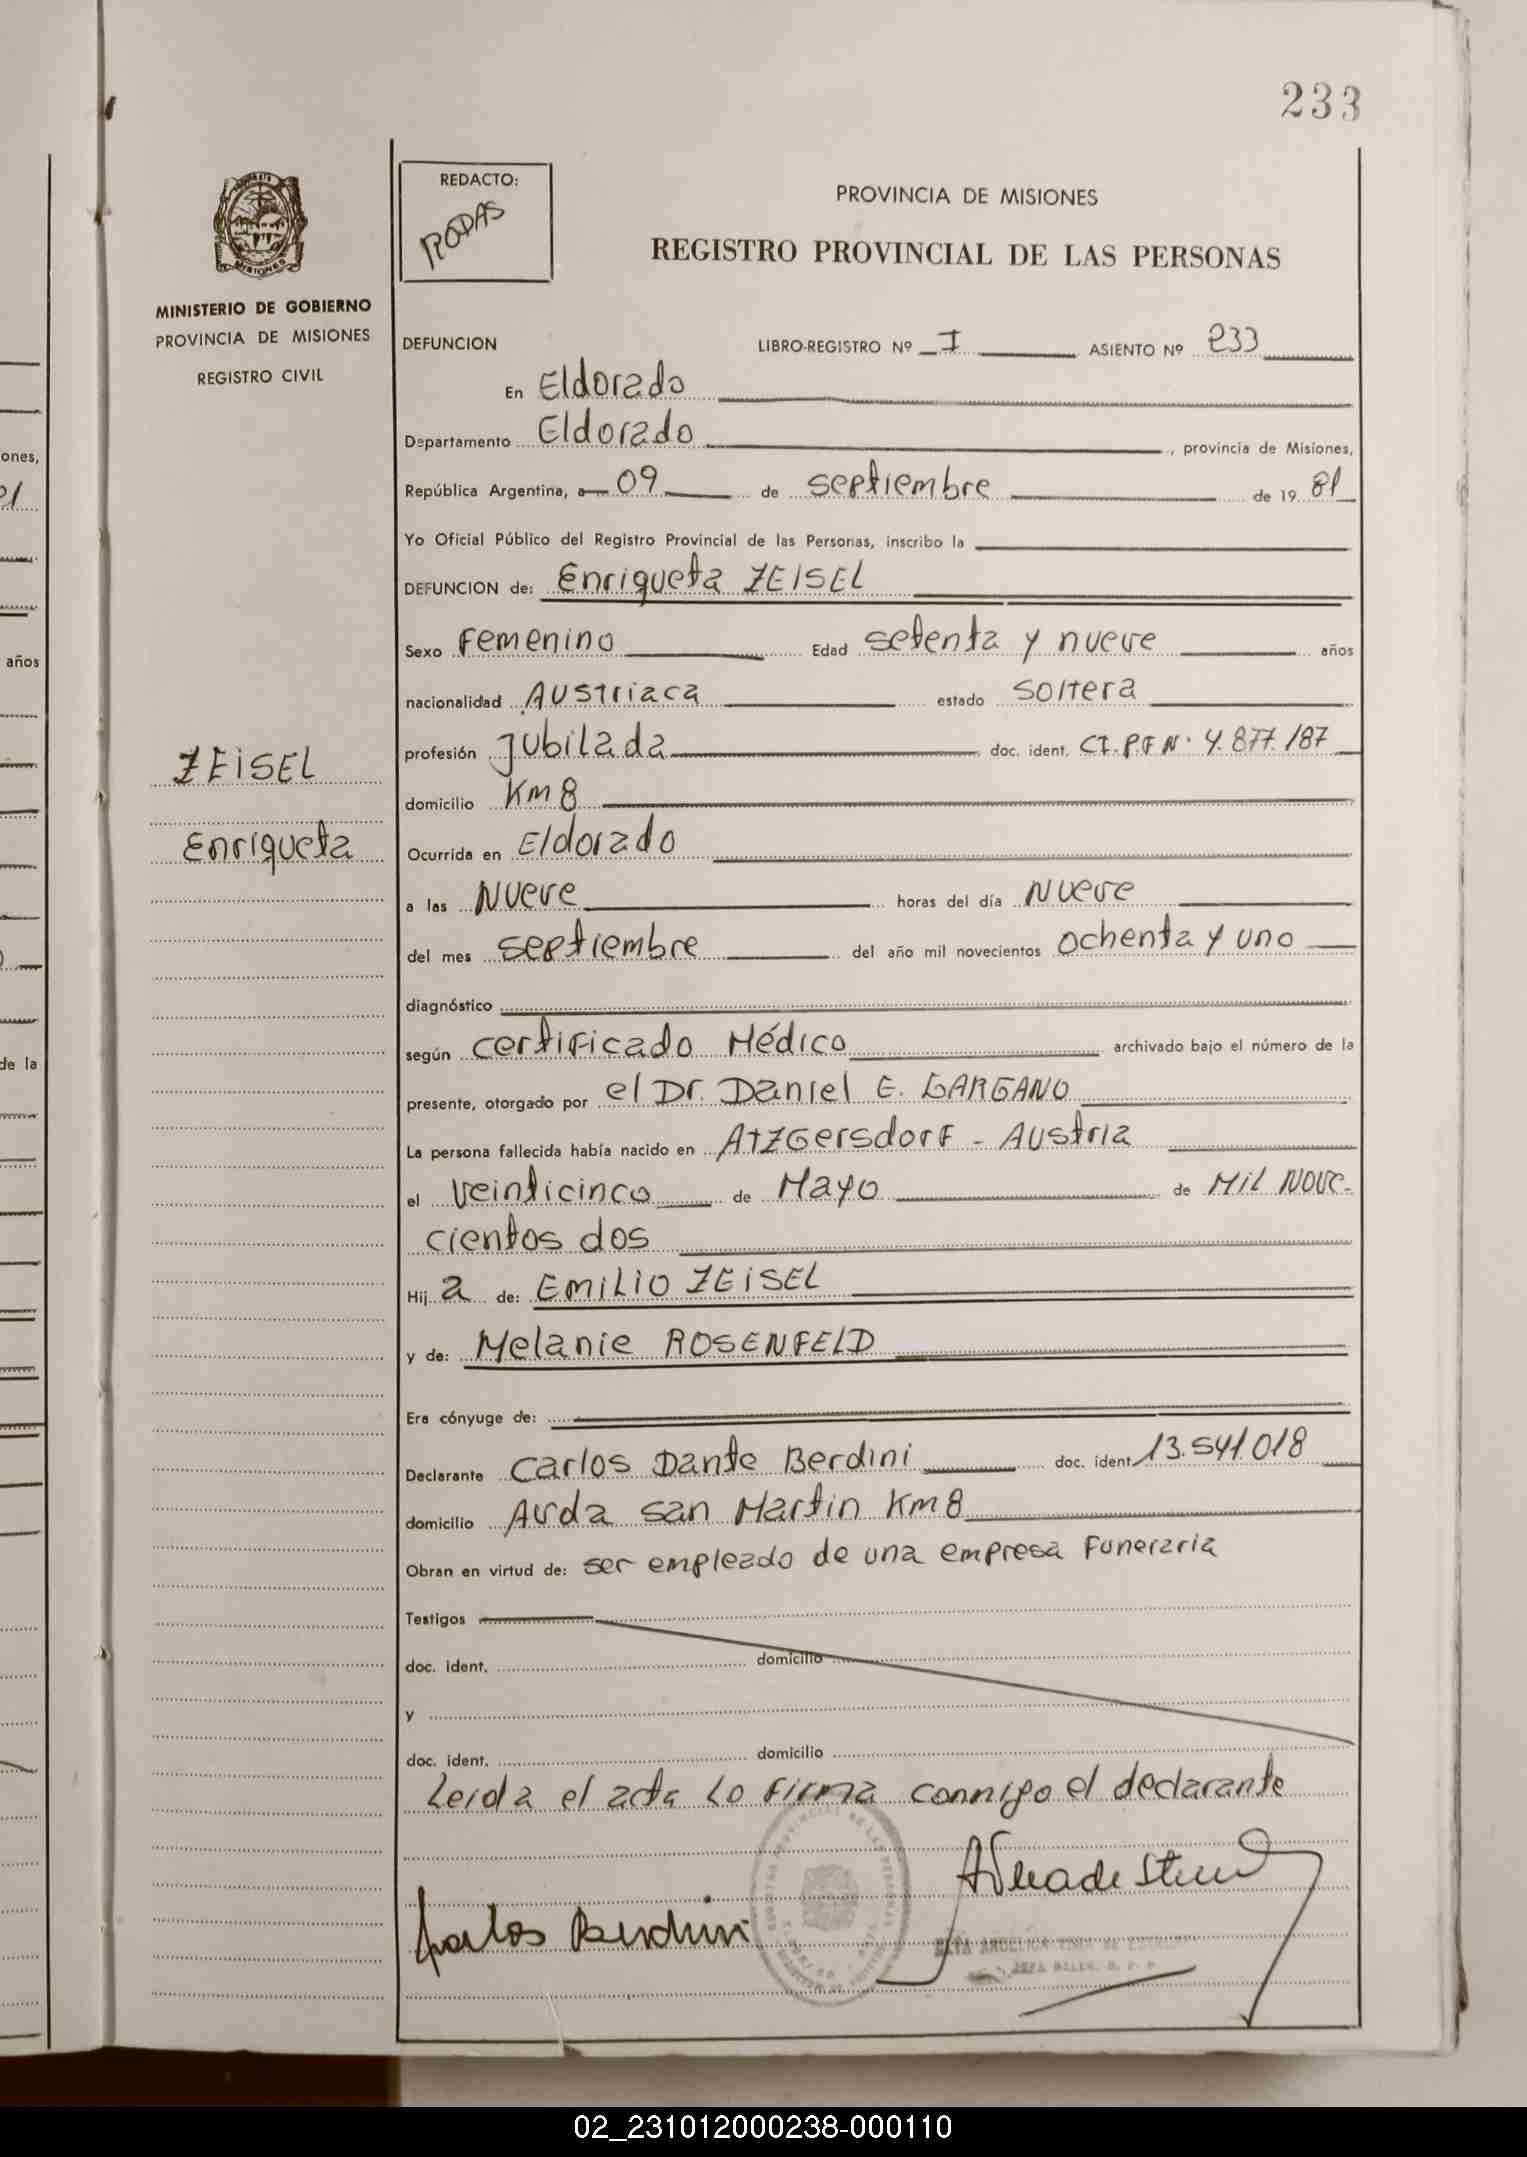 233
REDACTO:
RODAS
PROVINCIA DE MISIONES
REGISTRO PROVINCIAL DE LAS PERSONAS
MISIONES
MINISTERIO DE GOBIERNO
PROVINCIA DE MISIONES
REGISTRO CIVIL
DEFUNCION LIBRO-REGISTRO Nº I ASIENTO Nº 233
En Eldorado
Departamento Eldorado, provincia de Misiones,
República Argentina, a 09 de septiembre de 19 81
Yo Oficial Público del Registro Provincial de las Personas, inscribo la
DEFUNCION de: Enriqueta ZEISEL
Sexo Femenino Edad setenta y nueve años
nacionalidad Austriaca estado soltera
profesión Jubilada doc. ident. CI.P.F N. 4.877.187
domicilio Km 8
ZEISEL
Enriqueta
Ocurrida en Eldorado
a las Nueve horas del día Nueve
del mes septiembre del año mil novecientos ochenta y uno
diagnóstico
según certificado Médico archivado bajo el número de la
presente, otorgado por el Dr. Daniel E. GARGANO
La persona fallecida había nacido en AtzGersdorf - Austria
el veinticinco de Mayo de Mil Nove-
cientos dos
Hij a de: EMILIO ZEISEL
y de: Melanie ROSENFELD
Era cónyuge de:
Declarante Carlos Dante Berdini doc. ident 13.541.018
domicilio Avda san Martin Km8
Obran en virtud de: ser empleado de una empresa Funeraria
Testigos
doc. ident. domicilio
y
doc. ident. domicilio
Leida el acta Lo Firma conmigo el declarante
Carlos Berdini
02_231012000238-000110
ones,
años
de la